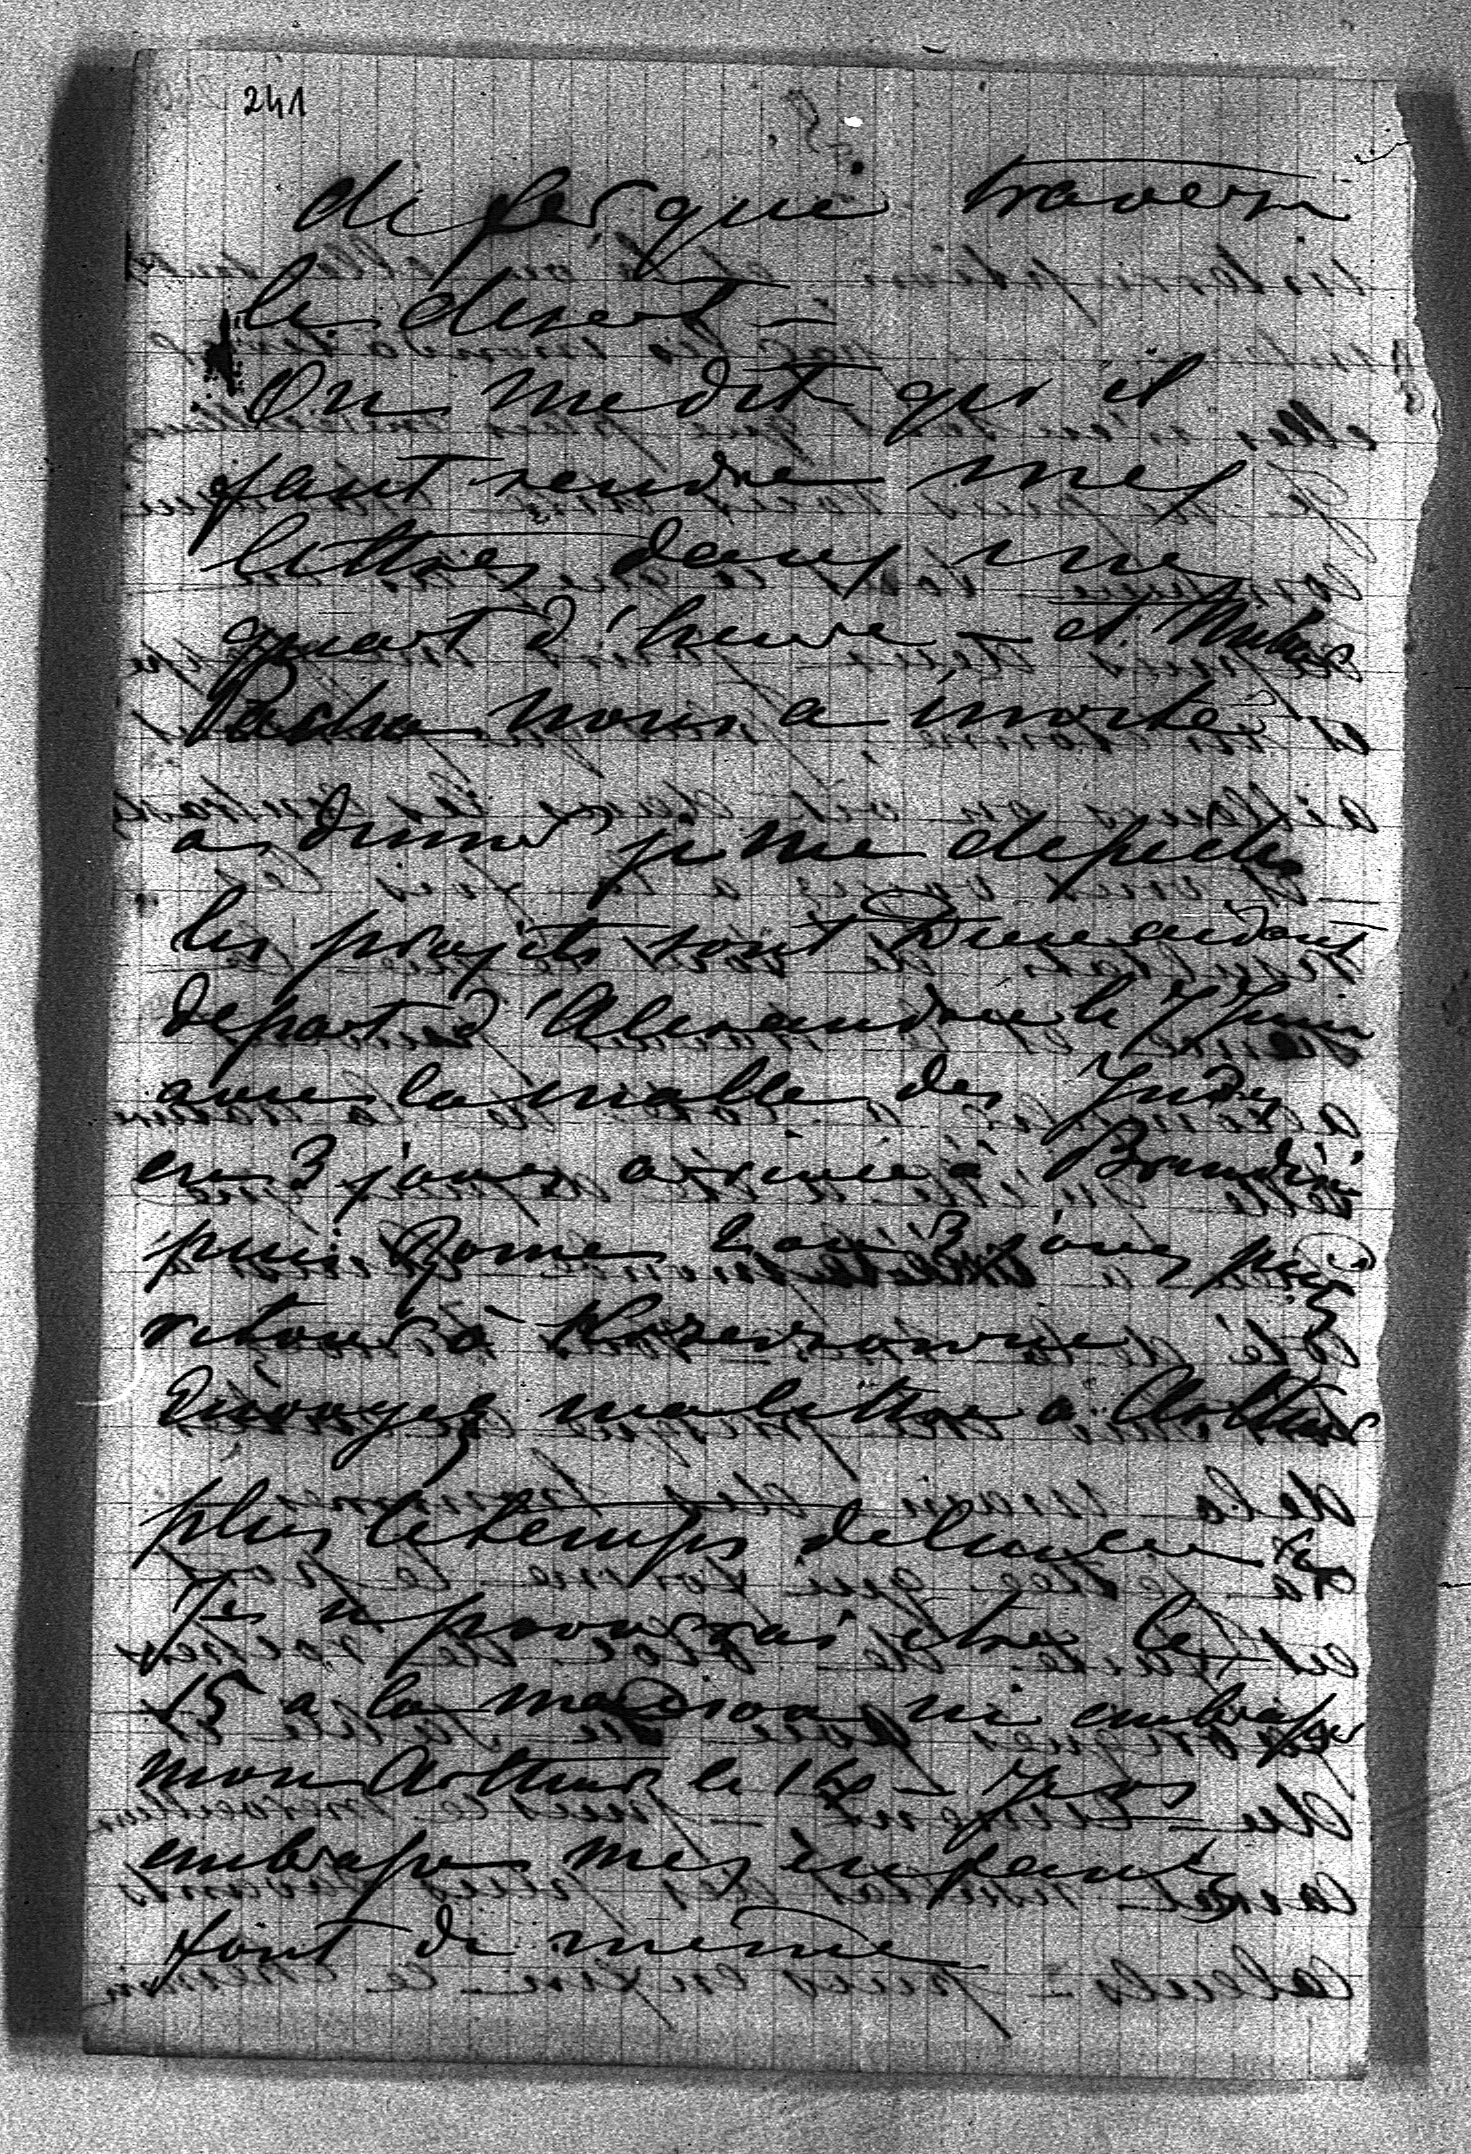 241
de fer qui traverse
le desert –
On me dit qu'il
faut rendre mes
lettres dans un
quart d'heure – et Nubar
Pasha nous a invités
a diner je me depeche
les projets sont Dieu aidant
depart d'Alexandrie le 7 Juin
avec la malle des Indes
en 3 jours arrivée a Brindisi
puis Rome 2 ou 3 jours puis
retour à
Envoyez ma lettre a Arthur
plus le temps de lui
Je n pourrai etre le
15 a la maison ni embrasser
mon Arthur le 16 – Je vs
embrasse mes enfants
font de meme